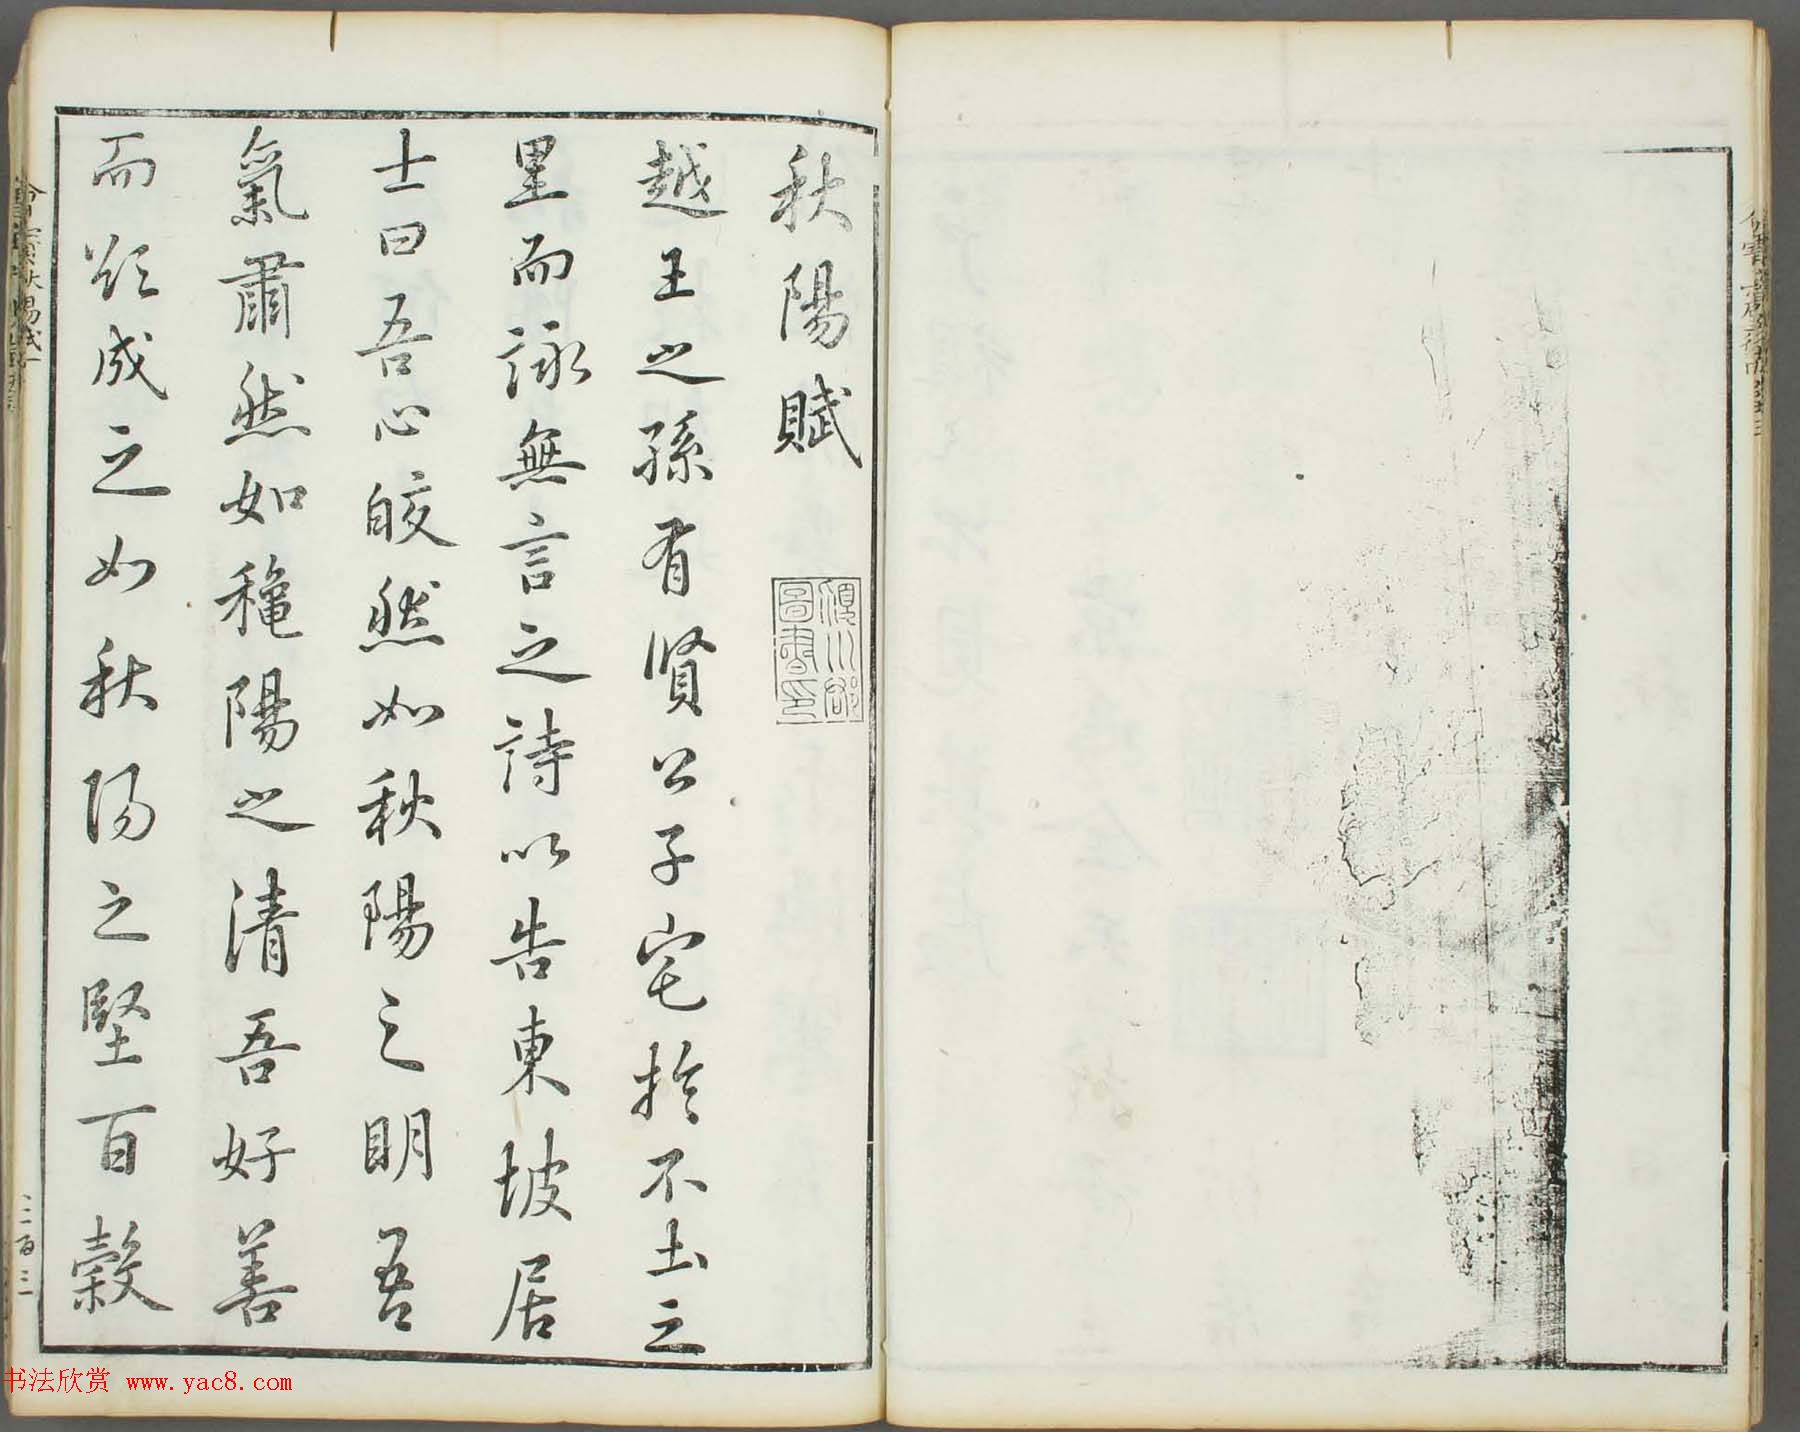 秋陽賦
越王之孫有賢公子宅於不土之
里而詠無言之詩以告東坡居
士曰吾心皎然如秋陽之明吾
氣肅然如龝陽之清吾好善
而欲成之如秋陽之堅百穀
二百三
书法欣赏 www.yac8.com